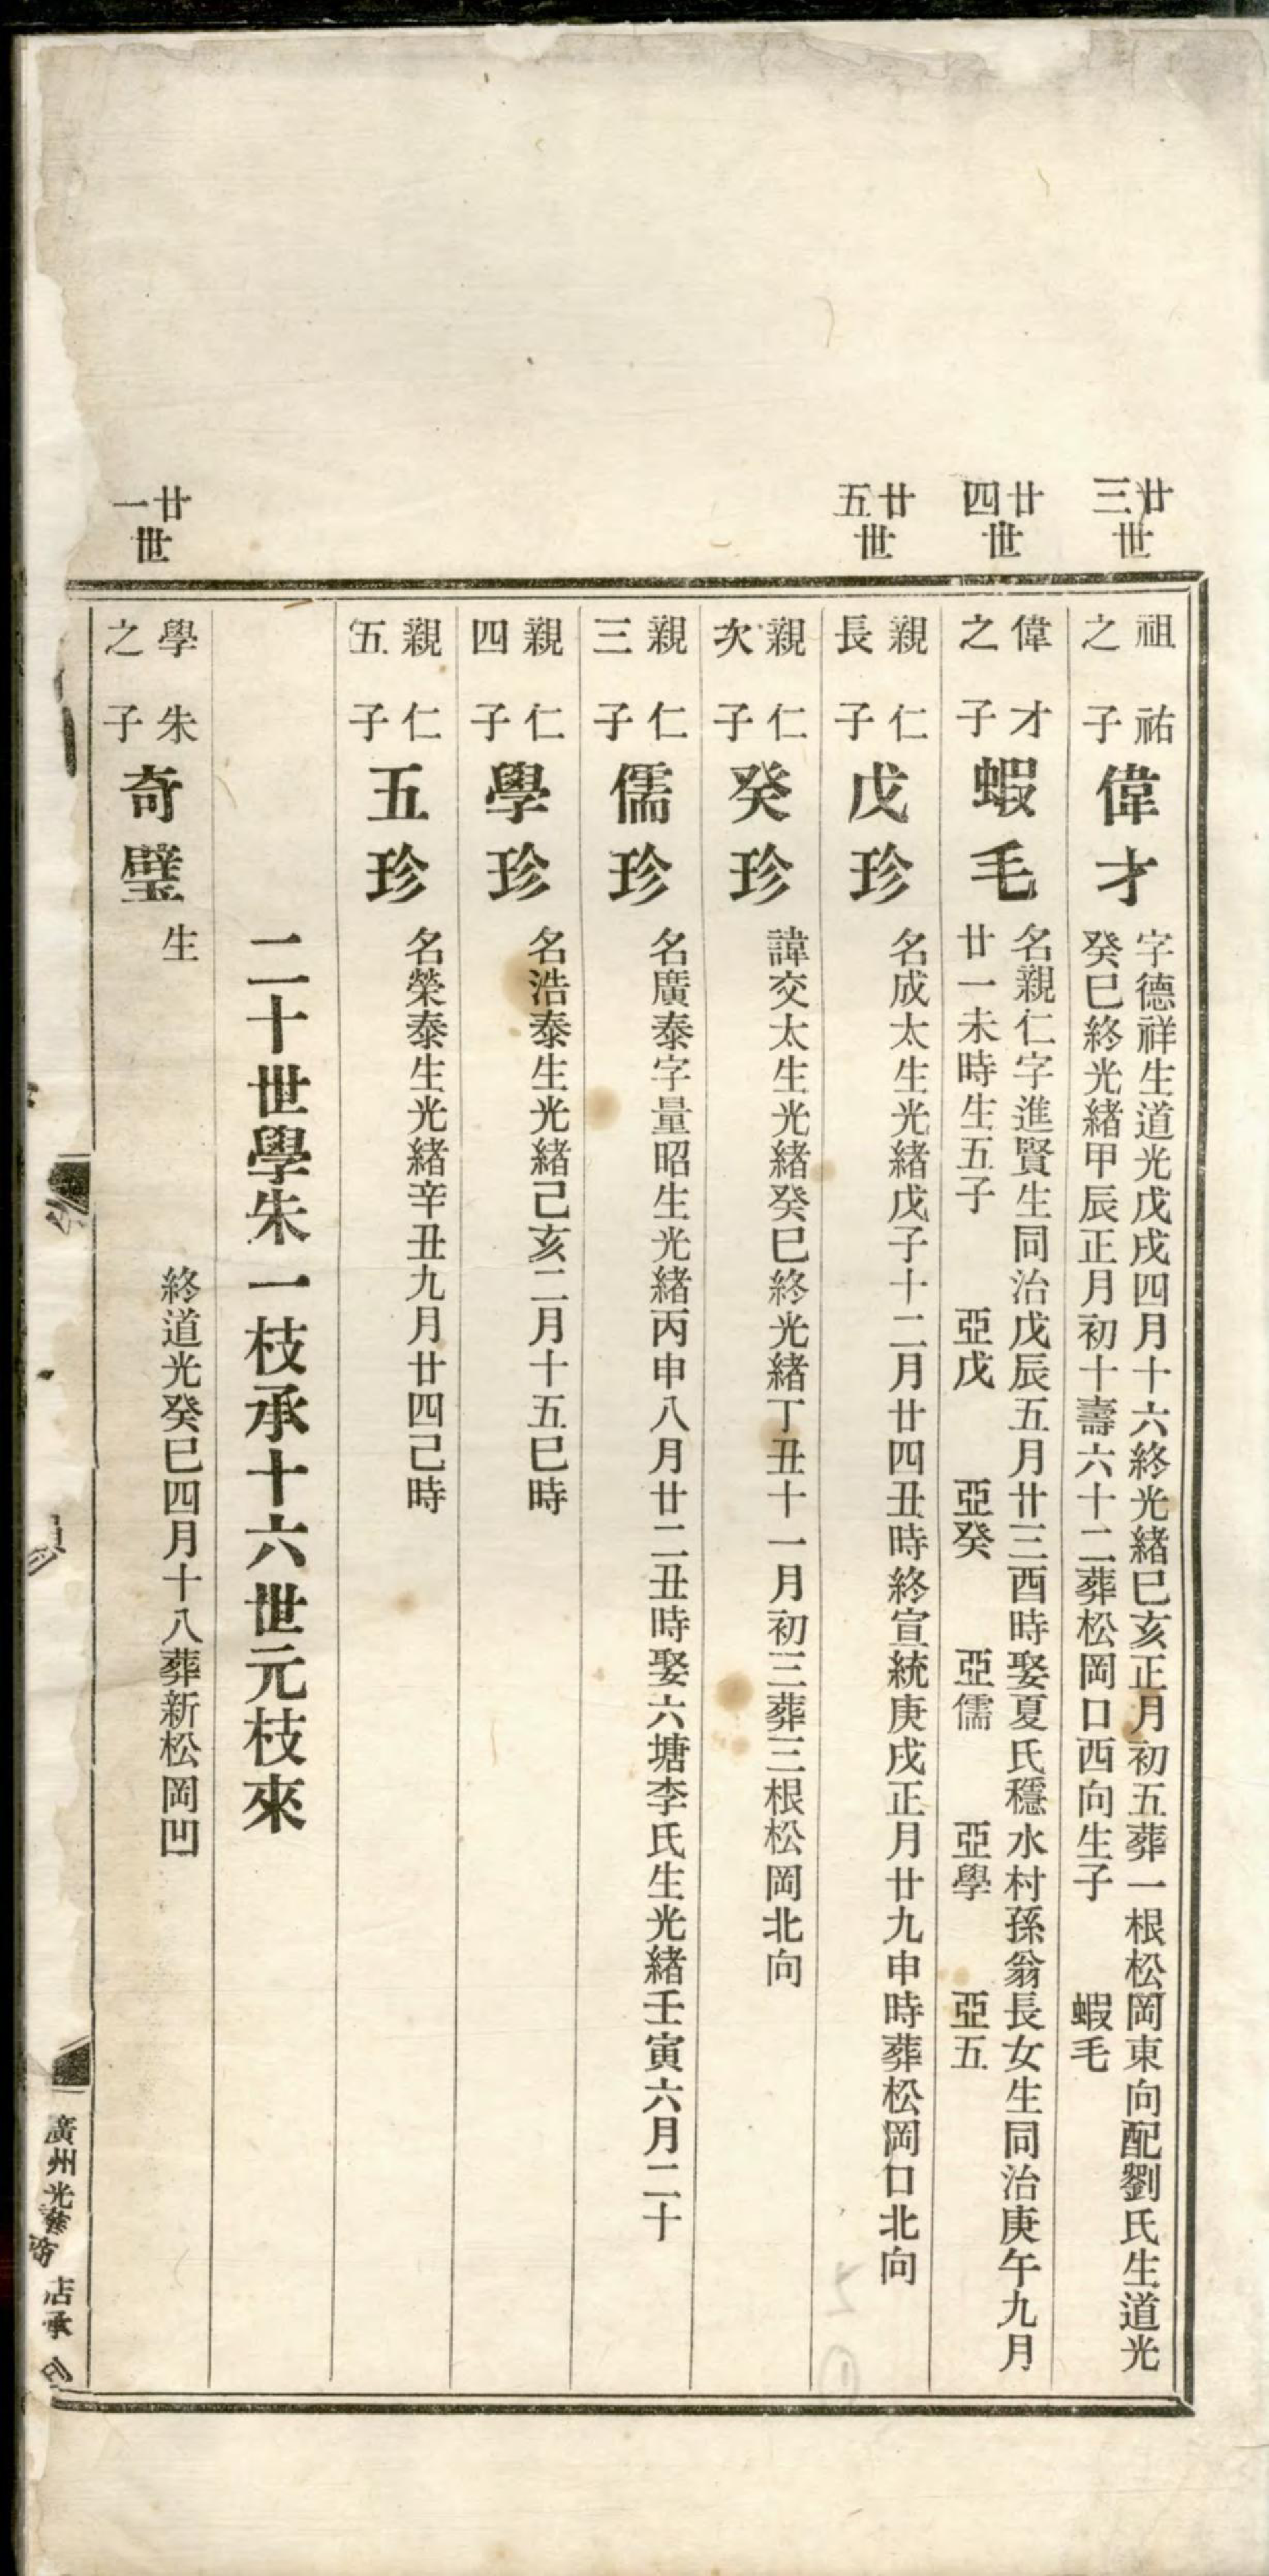 廿三世
祖祐之子
偉才
字德祥生道光戊戌四月十六終光緒巳亥正月初五葬一根松岡東向配劉氏生道光
癸巳終光緒甲辰正月初十壽六十二葬松岡口西向生子 蝦毛
廿四世
偉才之子
蝦毛
名親仁字進賢生同治戊辰五月廿三酉時娶夏氏穩水村孫翁長女生同治庚午九月
廿一未時生五子 亞戊 亞癸 亞儒 亞學 亞五
廿五世
親仁長子
戊珍
名成太生光緒戊子十二月廿四丑時終宣統庚戌正月廿九申時葬松岡口北向
親仁次子
癸珍
諱交太生光緒癸巳終光緒丁丑十一月初三葬三根松岡北向
親仁三子
儒珍
名廣泰字量昭生光緒丙申八月廿二丑時娶六塘李氏生光緒壬寅六月二十
親仁四子
學珍
名浩泰生光緒己亥二月十五巳時
親仁五子
五珍
名榮泰生光緒辛丑九月廿四己時
二十世學朱一枝承十六世元枝來
廿一世
學朱之子
奇璧
生 終道光癸巳四月十八葬新松岡凹
廣州光華 店承